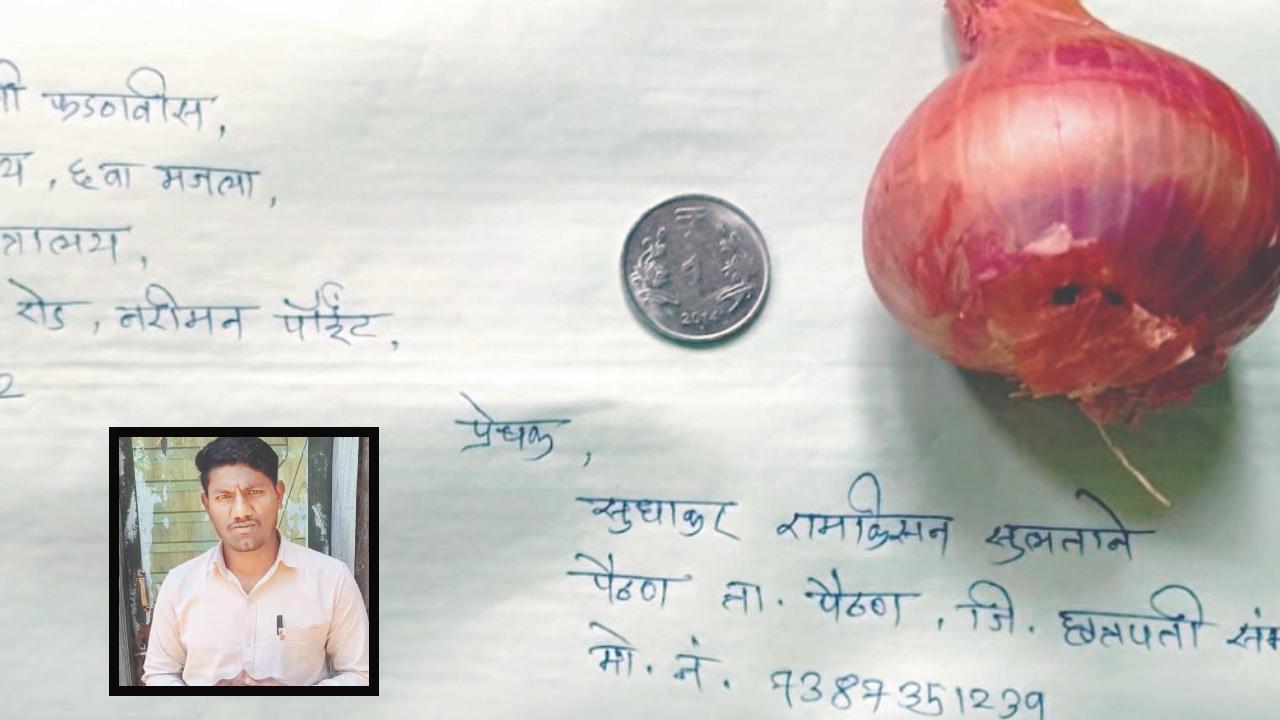 फडणवीस,
य, ६वा मजला,
त्रालय,
रोड, नरीमन पॉईंट,
2
प्रेषक,
सुधाकर रामकिसन सुलताने
पैठण ता. पैठण, जि. छत्रपती संभ
मो. नं. 7387351239
1
2014